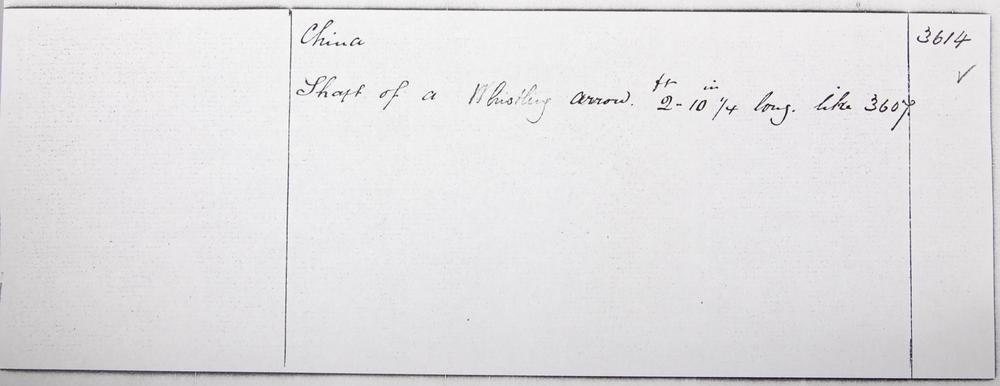 China 3614
✓
Shaft of a Whistling arrow. 2 ft - 10 1/4 in long. like 3607.